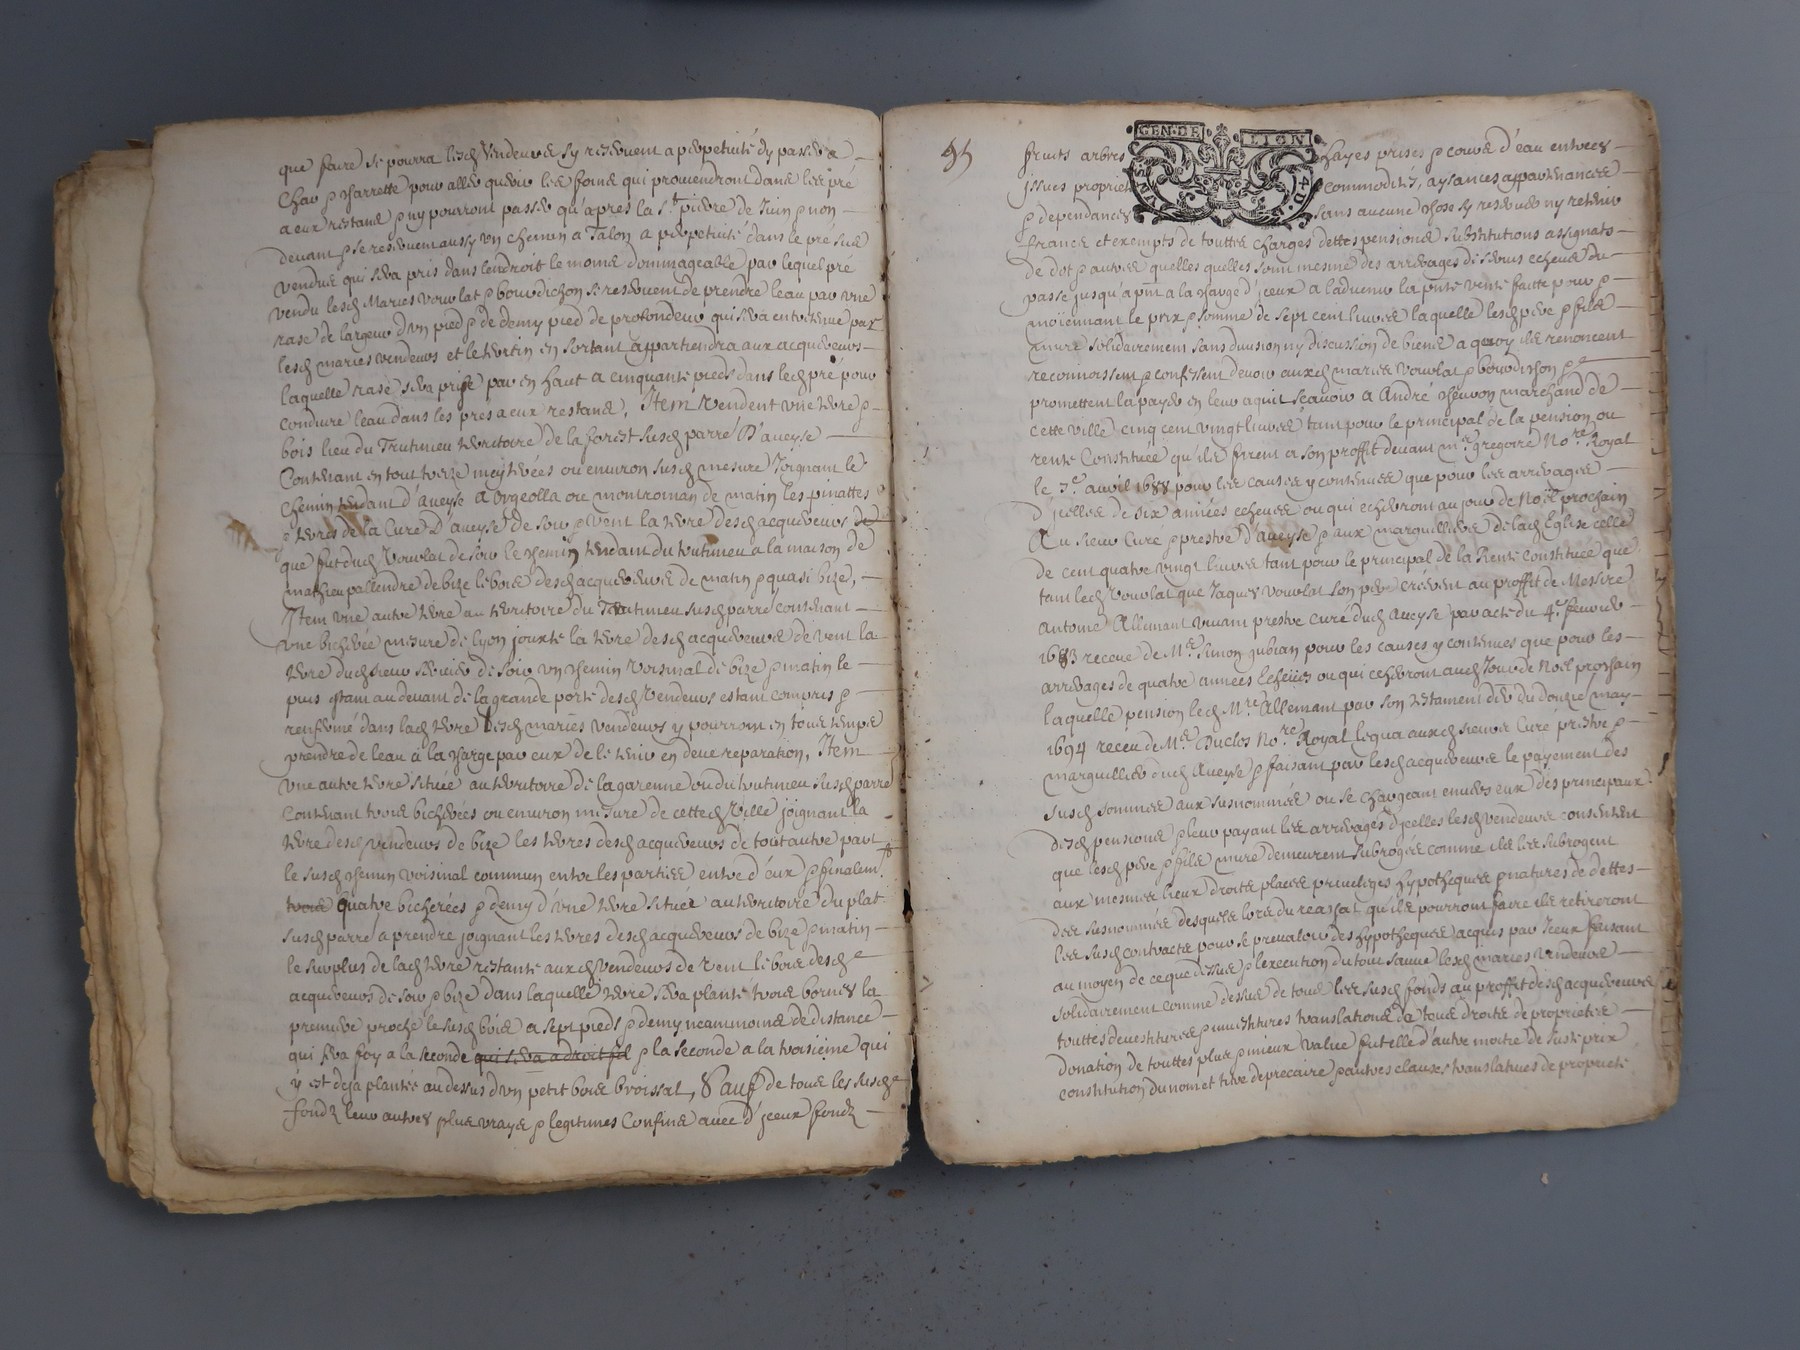 que faire se pourra lesd vendeurs sy reservent a perpetuité dy passer a
char & charrette pour aller querir les foins qui proviendront dans les pré
a eux restans & ny pourront passer qu'apres la St pierre de Juin & non
devant & se reservent aussy un chemin a Talon a perpetuité dans le pré sus
vendus qui sera pris dans lendroit le moins dommageable par lequel pré
vendu lesd Maries vourlat & bourdichon se reservent de prendre leau par une
rase de largeur d'un pied & de demy pied de profondeur qui sera entretenue par
lesd maries vendeurs et le tertin en sortant appartiendra aux acquereurs
laquelle rase sera prise par en haut a cinquante pieds dans led pré pour
conduire leau dans les pres a eux restans, Item vendent une terre &
bois lieu du Trutimeu territoire de la forest susd parre D'aveyse
Contenant en tout treize meyterées ou environ susd mesure Joignant le
chemin tendant d'aveyse a orgeolla ou montroman de matin les pinattes
& terres de la Cure D'aveyse de soir & vent la terre desd acquereurs
que fut dud vourlat de soir le chemin tendant du trutimeu a la maison de
mathieu pallendre de bize le bois desd acquereurs de matin & quasi bize,
Item une autre terre au territoire du Trutimeu susd parre contenant
une bicherée mesure de Lyon jouxte la terre desd acquereurs de vent la
terre dud sieur de soir un chemin voisinal de bize & matin le
puis estant au devant de la grande porte desd vendeurs estant compris &
renfermé dans lad terre lesd mariés vendeurs y pourront en tous temps
prendre de leau a la charge par eux de le tenir en deue reparation, Item
une autre terre située au territoire de la garenne ou du trutimeu susd parre
contenant trois bicherées ou environ mesure de cetted ville joignant la
terre desd vendeurs de bize les terres desd acquereurs de tout autre part
le susd chemin voisinal commun entre les parties entre d'eux & finalemt
trois quatre bicherées & demy d'une terre située au territoire du plat
susd parre a prendre joignant les terres desd acquereurs de bize & matin
le surplus de lad terre restante auxd vendeurs de vent le bois desd
acquereurs de soir & bize dans laquelle terre sera planté trois bornes la
premiere proche le susd bois a sept pieds & demy neantmoins de distance
qui sera foy a la seconde qui sera a droit fil & la seconde a la troisieme qui
y est deja plantée au dessus d'un petit bois broissal, Sauf de tous les susd
fonds leur autres plus vrays & legitimes Confins avec d'iceux fonds
95
GEN·DE LION
fruits arbres hayes prises & cours d'eau entrées
issues propriet commodités, aysances appartenances
& dependances sans aucune chose sy reserver ny retenir
francs et exempts de touttes charges dettes pensions substitutions assignats
de dot & autres quelles quelles soint mesme des arrerages de servis echeus du
passé jusqu'a pnt a la charge d'iceux a ladvenir la pnte vente faitte pour &
moïennant le prix & somme de sept cent livres laquelle lesd pere & fils
mure solidairement sans division ny discussion de biens a quoy ils renoncent
reconnoissent & confessent devoir auxd maries vourlat & bourdichon &
promettent la payer en leur aquit scavoir a André chenvon marchand de
cette ville cinq cent vingt livres tant pour le principal de la pension ou
rente Constituée qu'ils firent a son proffit devant mre gregoire Nore Royal
le 3e avril 1688 pour les causes y contenues que pour les arrerages
d'icelles de six années echeues ou qui echerront au jour de Noël prochain
Au sieur Cure & prestre d'aveyse & aux marguilliers de lad Eglise celle
de cent quatre vingt livres tant pour le principal de la Rente constituée que
tant led Vourlat que Jaques vourlat son pere creerent au proffit de Messire
Antoine Allemant vivant prestre curé dud Aveyse par acte du 4e fevrier
1683 receue de Me Simon gubian pour les causes y contenues que pour les
arrerages de quatre années Echeües ou qui echerront aud Jour de Noël prochain
laquelle pension led Mre Allemant par son testament du douze may
1694 receu de Me Duclos Nore Royal legua auxd sieurs Curé prestre &
marguilliers dud Aveyse & faisant par lesd acquereurs le payement des
susd sommes aux susnommés ou se chargeant envers eux des principaux
desd pensions & leur payant les arrerages d'icelles lesd vendeurs consentent
que lesd pere & fils mure demeurent subrogés comme ils les subrogent
aux mesmes lieux droits places privileges hypotheques & natures de dettes
des susnommés desquels lors du reachat qu'ils pourront faire ils retireront
les susd contracts pour se prevaloir des hypotheques acquis par Iceux faisant
au moyen de ce que dessus & lexecution du tout sauve lesd maries vendeurs
solidairement comme dessus de tous les susd fonds au proffit desd acquereurs
touttes devestitures & investitures translations de tous droits de proprietés
donation de touttes plus & mieux value fut elle d'autre moitié de Juste prix
constitution du nom et titre de precaire & autres clauses translatives de proprieté